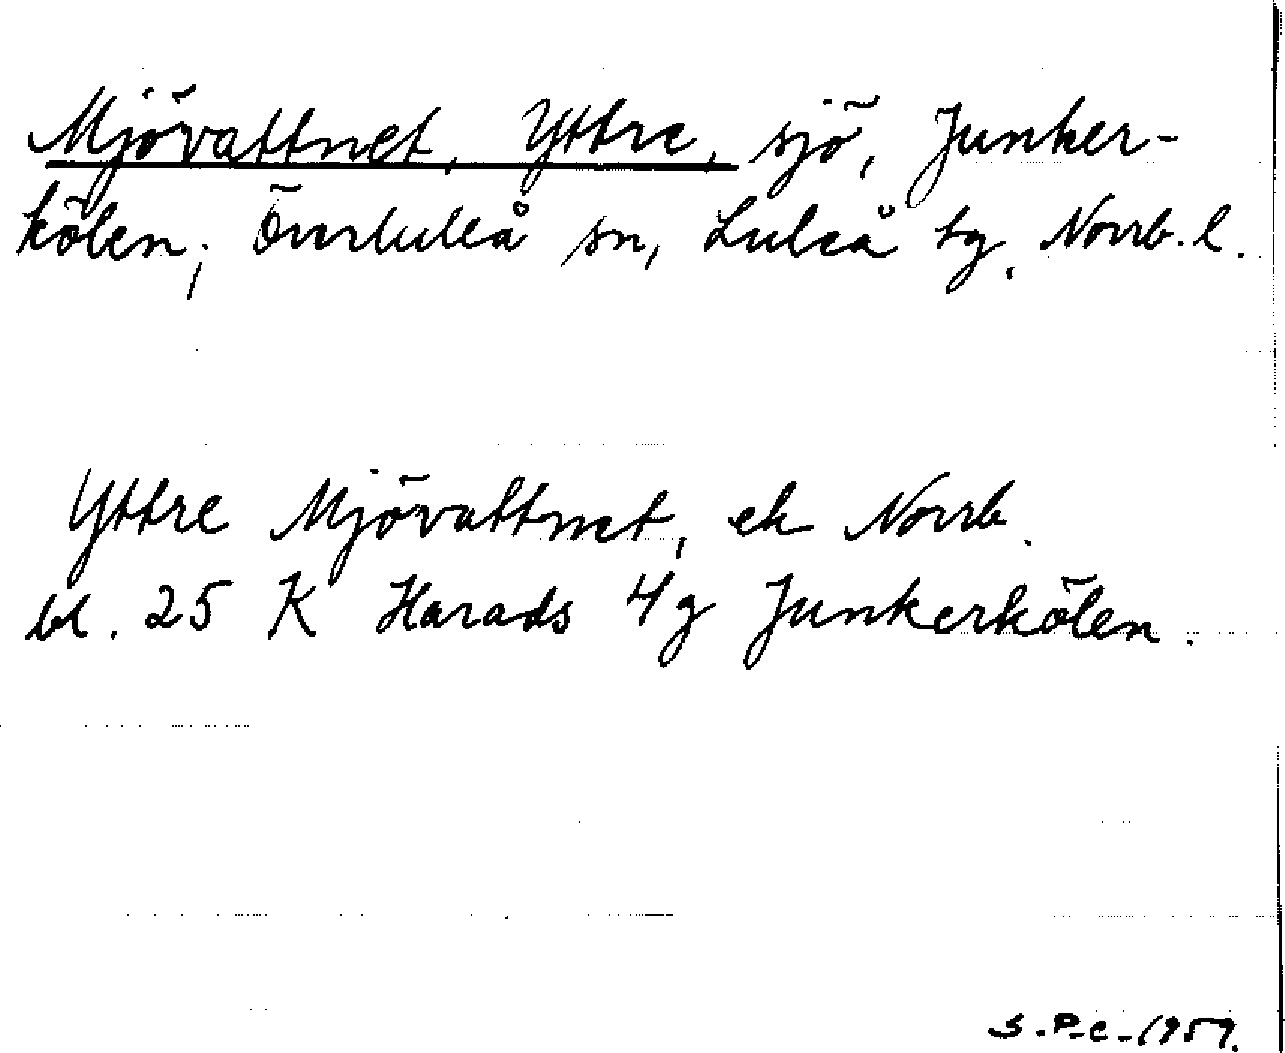 Mjövattnet, Yttre, sjö, Junker-
kölen, Överluleå sn, Luleå tg, Norrb. l.
Yttre Mjövattnet, ek Norrb.
bl. 25 K Harads 4g Junkerkölen.
S.P.C. 1959.